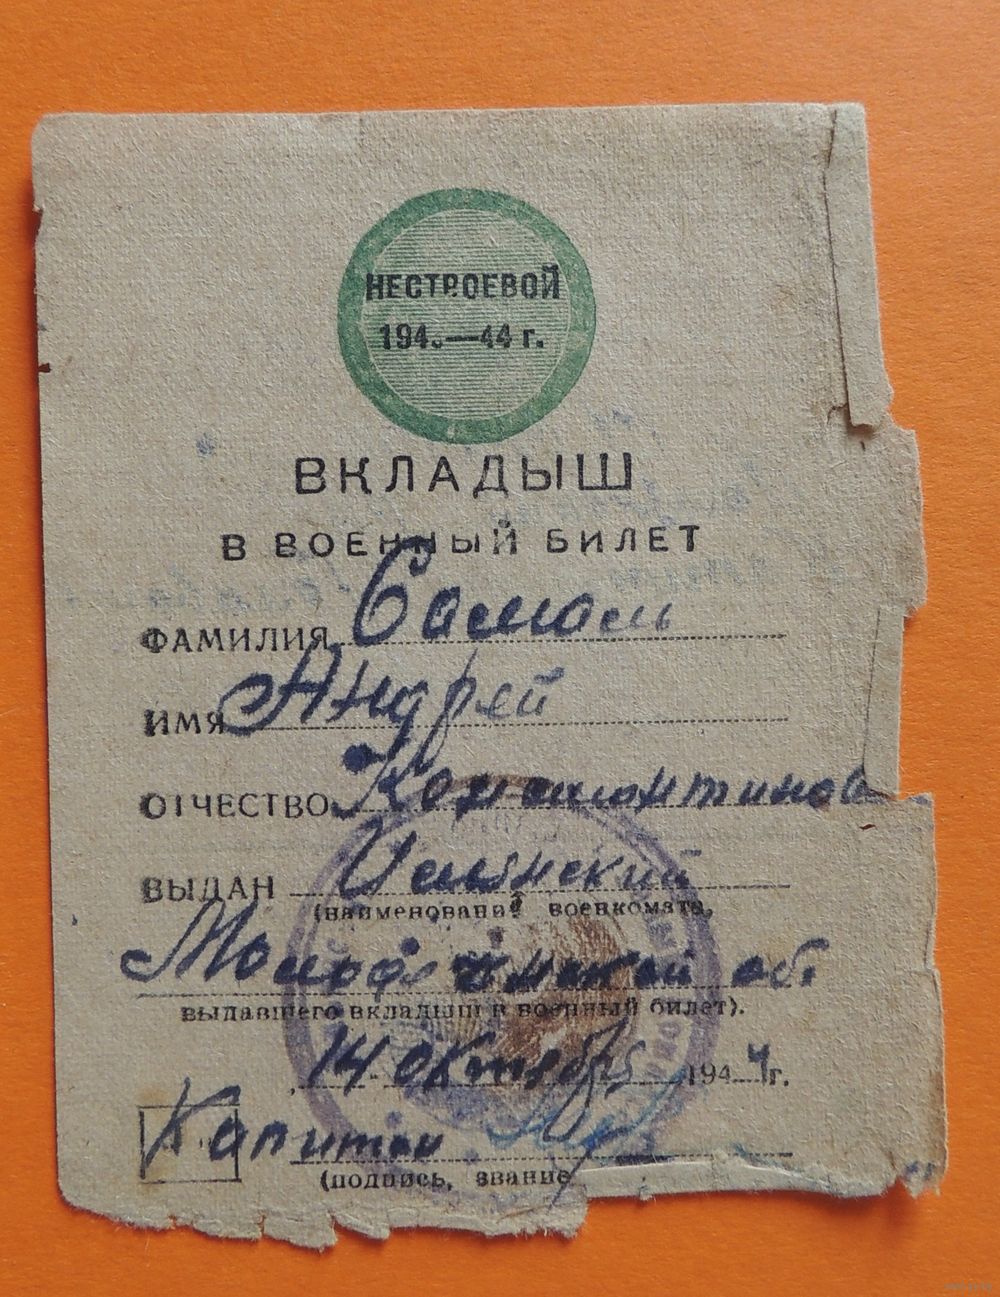 НЕСТРОЕВОЙ
194 —44 г.
ВКЛАДЫШ
В ВОЕННЫЙ БИЛЕТ
ФАМИЛИЯ
ИМЯ Андрей
ОТЧЕСТВО Константинов
ВЫДАН
(наименование военкомата,
об.
выдавшего вкладыш в военный билет).
14 октября 1944 г.
Капитан
(подпись, звание